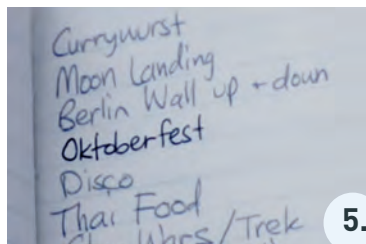 Currywurst
Moon Landing
Berlin Wall up + down
Oktoberfest
Disco
Thai Food
Star Wars/Trek
5.